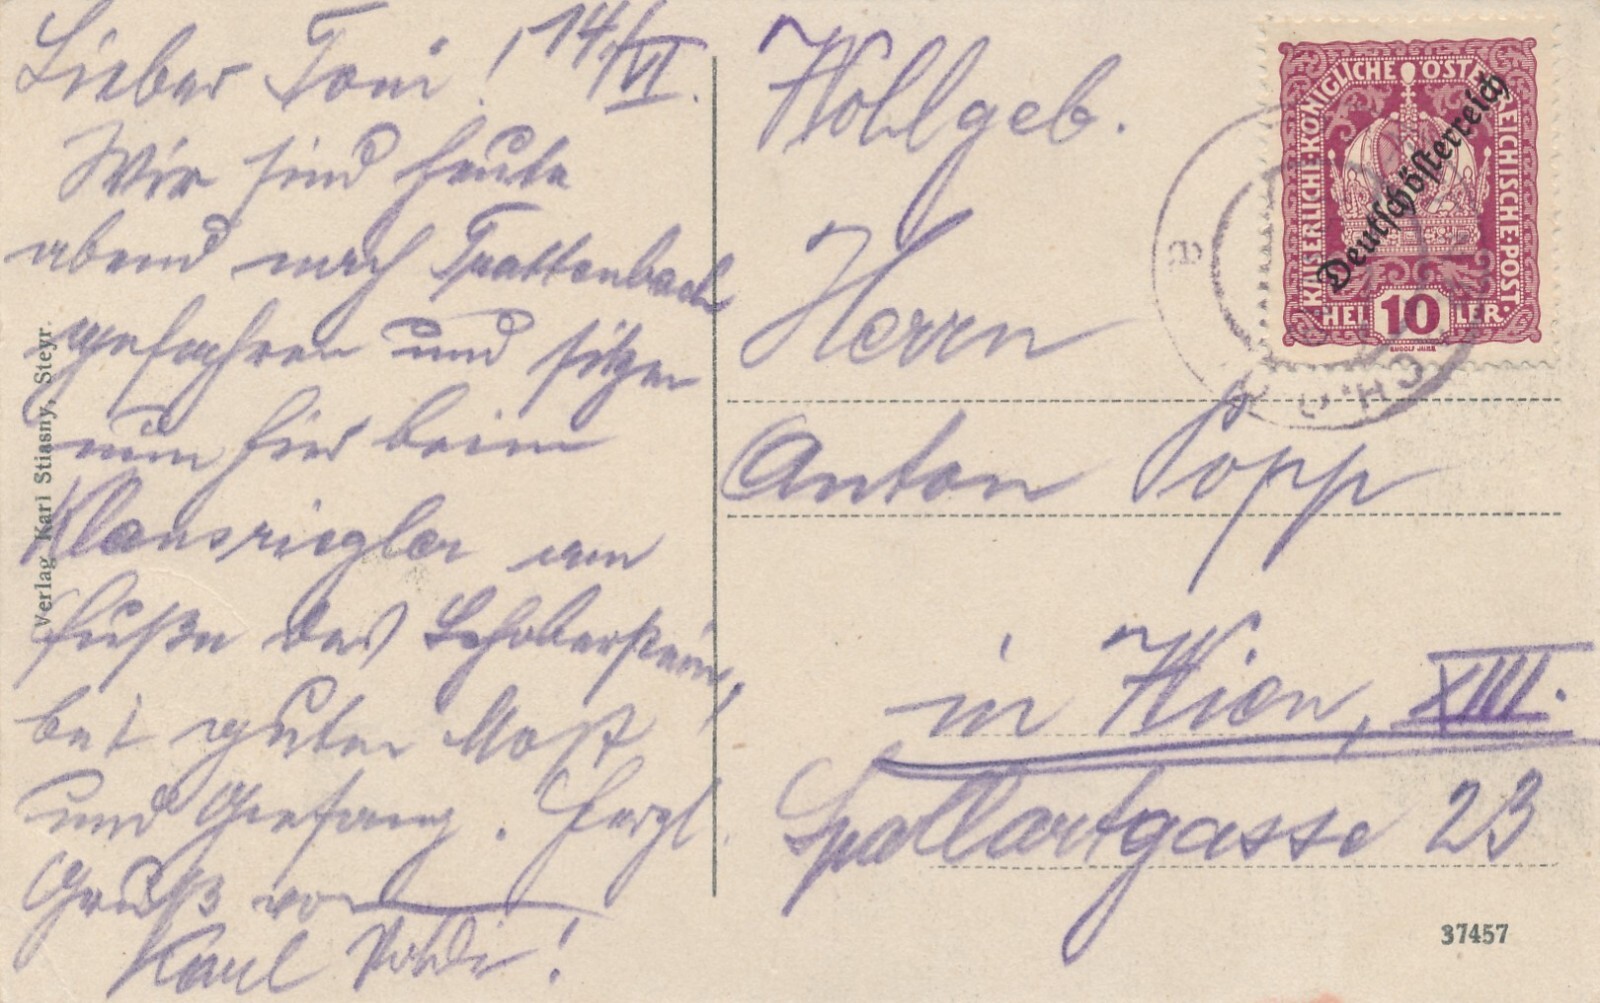 Lieber Toni! 14/VI.
Wir sind heute
abend nach Trattenbach
gefahren und sitzen
nun hier beim
Klausriegler am
Fuße des Schoberstein,
bei guten Most
und Gesang. Herzl.
Gruß von
Karl Poldi!
Verlag Karl Stiasny, Steyr.
Wohlgeb.
Herrn
Anton Popp
in Wien, XIII.
Spallartgasse 23
KAISERLICHE KÖNIGLICHE ÖSTERREICHISCHE POST
Deutschösterreich
HELLER
10
RUDOLF JUNK
37457